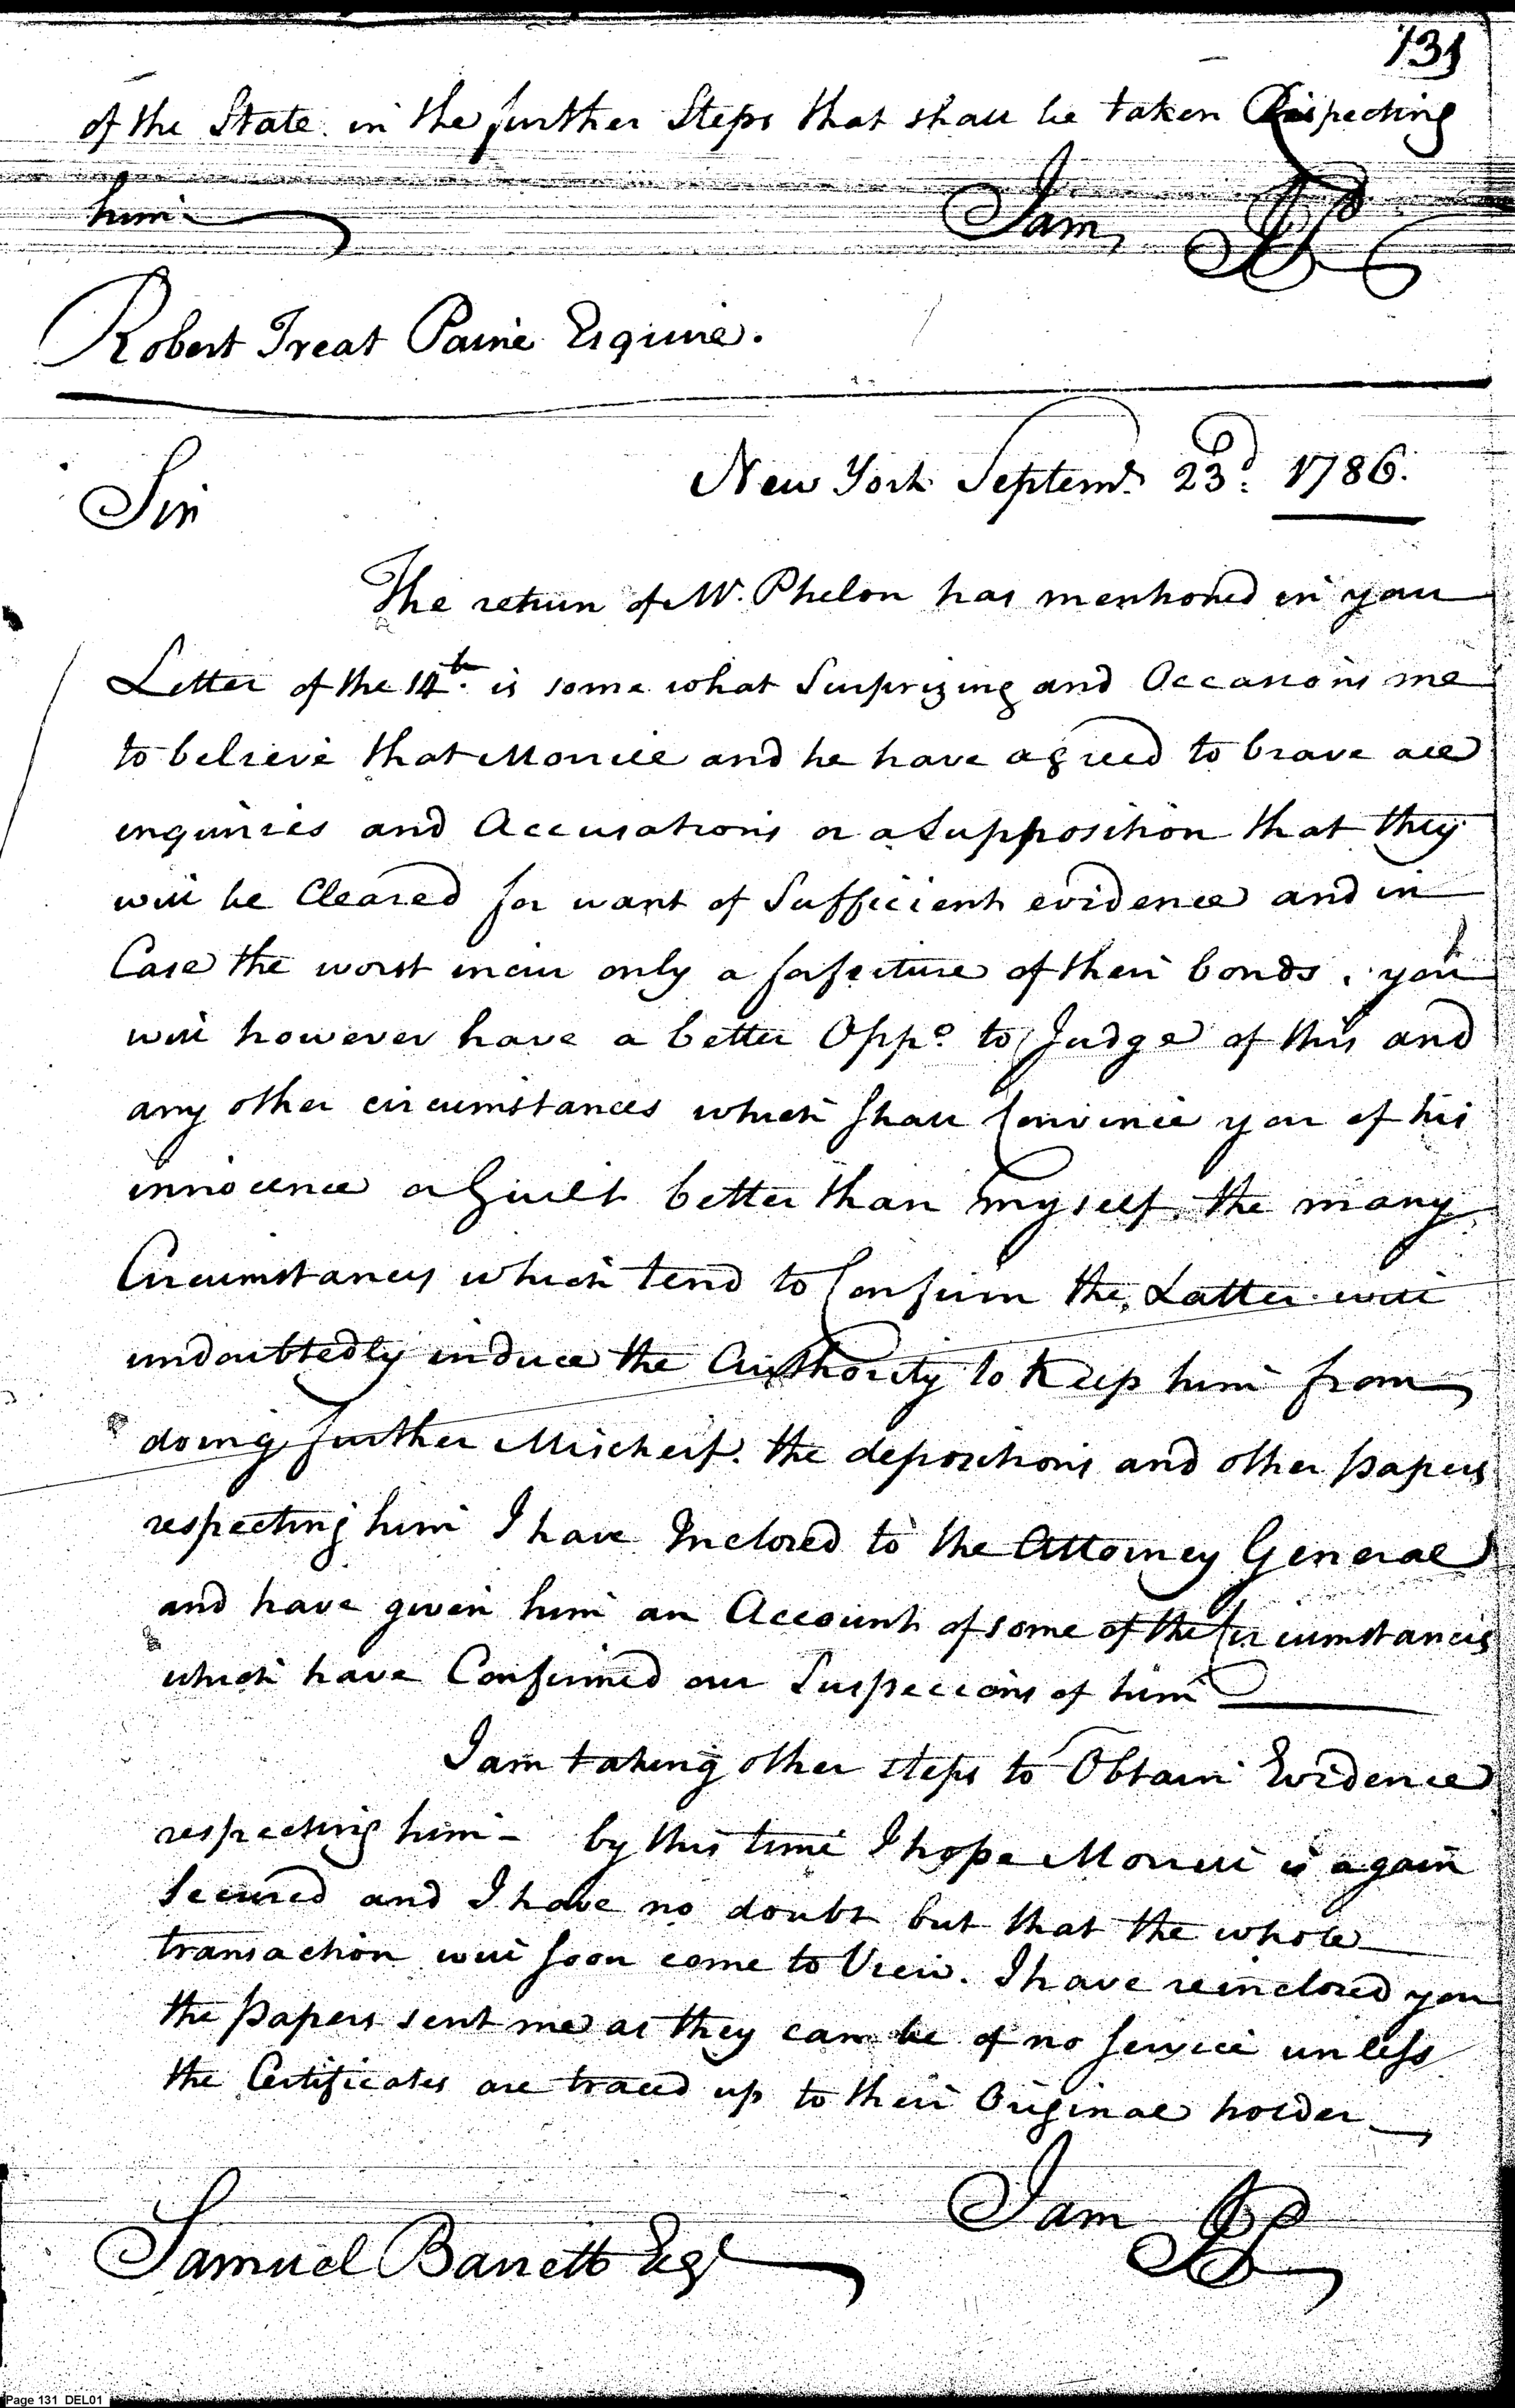 131
of the State in the further Steps that shall be taken Respecting
him
I am
Robert Treat Paine Esquire.
New York Septemr. 23d. 1786.
Sir
The return of Mr. Phelon has mentioned in your
Letter of the 14th. is some what Surprizing and Occasions me
to believe that and he have agreed to brave all
inquiries and Accusations on a Supposition that they
will be Cleared for want of Sufficient evidence and in
Case the worst incur only a forfeiture of their bonds. you
will however have a better Oppo. to Judge of this and
any other circumstances which shall Convince you of his
innocence or Guilt better than myself. the many
Circumstances which tend to Confirm the Latter will
undoubtedly induce the Authority to Keep him from
doing further Mischeif. the depositions and other papers
respecting him I have Inclosed to the Attorney General
and have given him an Account of some of the Circumstances
which have Confirmed our Suspecions of him
I am taking other steps to Obtain Evidence
respecting him - by this time I hope is again
Secured and I have no doubt but that the whole
transaction will soon come to View. I have reinclosed you
the papers sent me as they can be of no service unless
the Certificates are traced up to their Original holder
I am
Samuel Barrett Esqr
Page 131 DEL01